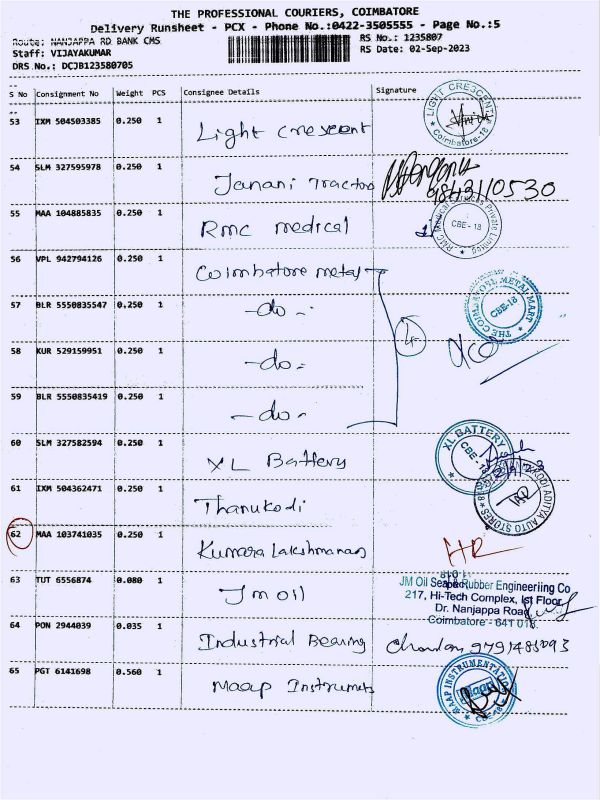 THE PROFESSIONAL COURIERS, COIMBATORE
Delivery Runsheet - PCX - Phone No.:0422-3505555 - Page No.:5
Route: NANJAPPA RD BANK CMS
RS No.: 1235807
Staff: VIJAYAKUMAR
RS Date: 02-Sep-2023
DRS No.: DCJB123580705
S No Consignment No Weight PCS Consignee Details Signature
53 IXM 504503385 0.250 1 Light Crescent
LIGHT CRESCENT
Coimbatore-18
54 SLM 327595978 0.250 1 Janani Tractors
9843110530
55 MAA 104885835 0.250 1 RMC medical
RMC Medical Services Private Limited
CBE - 18
56 VPL 942794126 0.250 1 Coimbatore metal
57 BLR 5550835547 0.250 1 -do-
THE COIMBATORE METAL MART
CBE-18
58 KUR 529159951 0.250 1 -do-
59 BLR 5550835419 0.250 1 -do-
60 SLM 327582594 0.250 1 XL Battery
XL BATTERY
CBE-18
61 IXM 504362471 0.250 1 Thanukodi
ADITYA AUTO STORES
62 MAA 103741035 0.250 1 Kumara Lakshmanan
63 TUT 6556874 0.080 1 JM oil
JM Oil Seal & Rubber Engineeriing Co
217, Hi-Tech Complex, Ist Floor,
Dr. Nanjappa Road
Coimbatore - 641 018.
64 PON 2944039 0.035 1 Industrial Bearing
65 PGT 6141698 0.560 1 Maap Instruments
MAAP INSTRUMENTATION
CBE-18